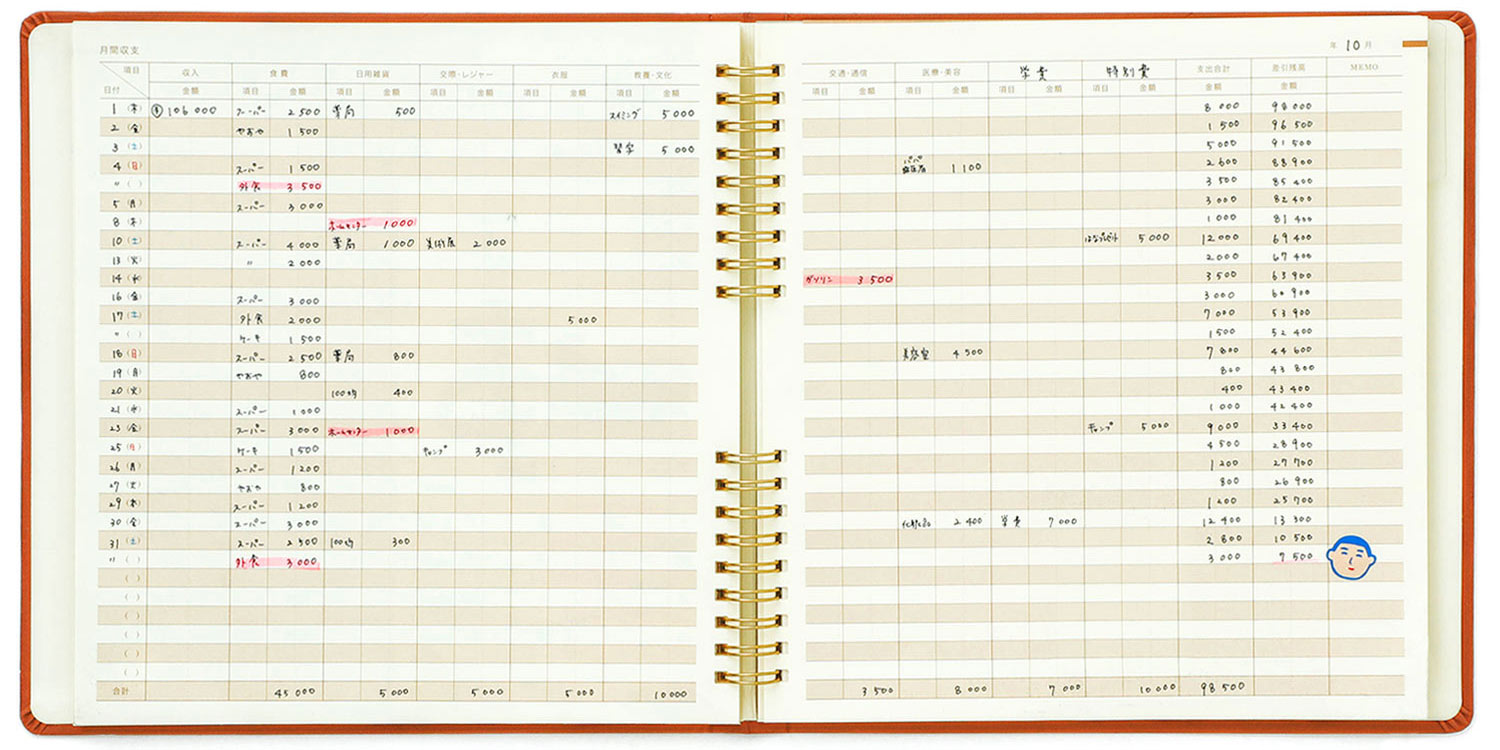 月間収支
年 10月
項目 収入 食費 日用雑貨 交際・レジャー 衣服 教養・文化 交通・通信 医療・美容 学費 特別費 支出合計 差引残高 MEMO
日付 金額 項目 金額 項目 金額 項目 金額 項目 金額 項目 金額 項目 金額 項目 金額 項目 金額 項目 金額 金額 金額
1(木) 106 000 スーパー 2 500 薬局 500 スイミング 5 000 8 000 98 000
2(金) やおや 1 500 1 500 96 500
3(土) 習字 5 000 5 000 91 500
4(日) スーパー 1 500 パパ 1 100 2 600 88 900
〃( ) 外食 3 500 3 500 85 400
5(月) スーパー 3 000 3 000 82 400
8(木) ホームセンター 1 000 1 000 81 400
10(土) スーパー 4 000 薬局 1 000 美術展 2 000 5 000 12 000 69 400
13(火) 〃 2 000 2 000 67 400
14(水) ガソリン 3 500 3 500 63 900
16(金) スーパー 3 000 3 000 60 900
17(土) 外食 2 000 5 000 7 000 53 900
〃( ) ケーキ 1 500 1 500 52 400
18(日) スーパー 2 500 薬局 800 美容室 4 500 7 800 44 600
19(月) やおや 800 800 43 800
20(火) 100均 400 400 43 400
21(水) スーパー 1 000 1 000 42 400
23(金) スーパー 3 000 ホームセンター 1 000 キャンプ 5 000 9 000 33 400
25(日) ケーキ 1 500 キャンプ 3 000 4 500 28 900
26(月) スーパー 1 200 1 200 27 700
27(火) やおや 800 800 26 900
29(木) スーパー 1 200 1 200 25 700
30(金) スーパー 3 000 化粧品 2 400 学費 7 000 12 400 13 300
31(土) スーパー 2 500 100均 300 2 800 10 500
〃( ) 外食 3 000 3 000 7 500
( )
( )
( )
( )
( )
( )
合計 45 000 5 000 5 000 5 000 10 000 3 500 8 000 7 000 10 000 98 500